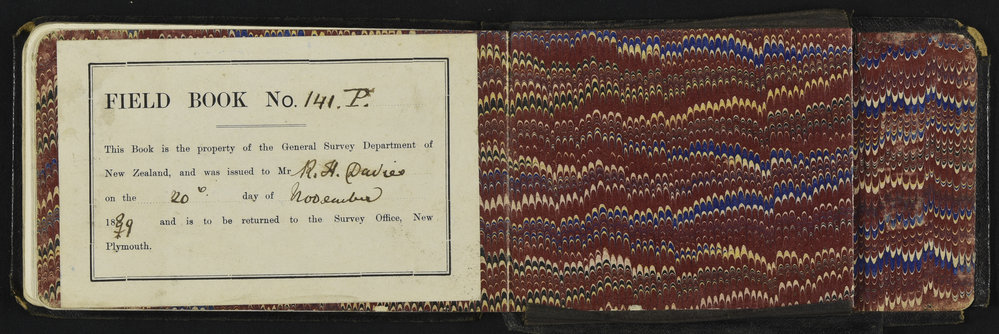 FIELD BOOK No. 141. P.
This Book is the property of the General Survey Department of
New Zealand, and was issued to Mr R. H. Davies
on the 20th day of November
1889 and is to be returned to the Survey Office, New
Plymouth.